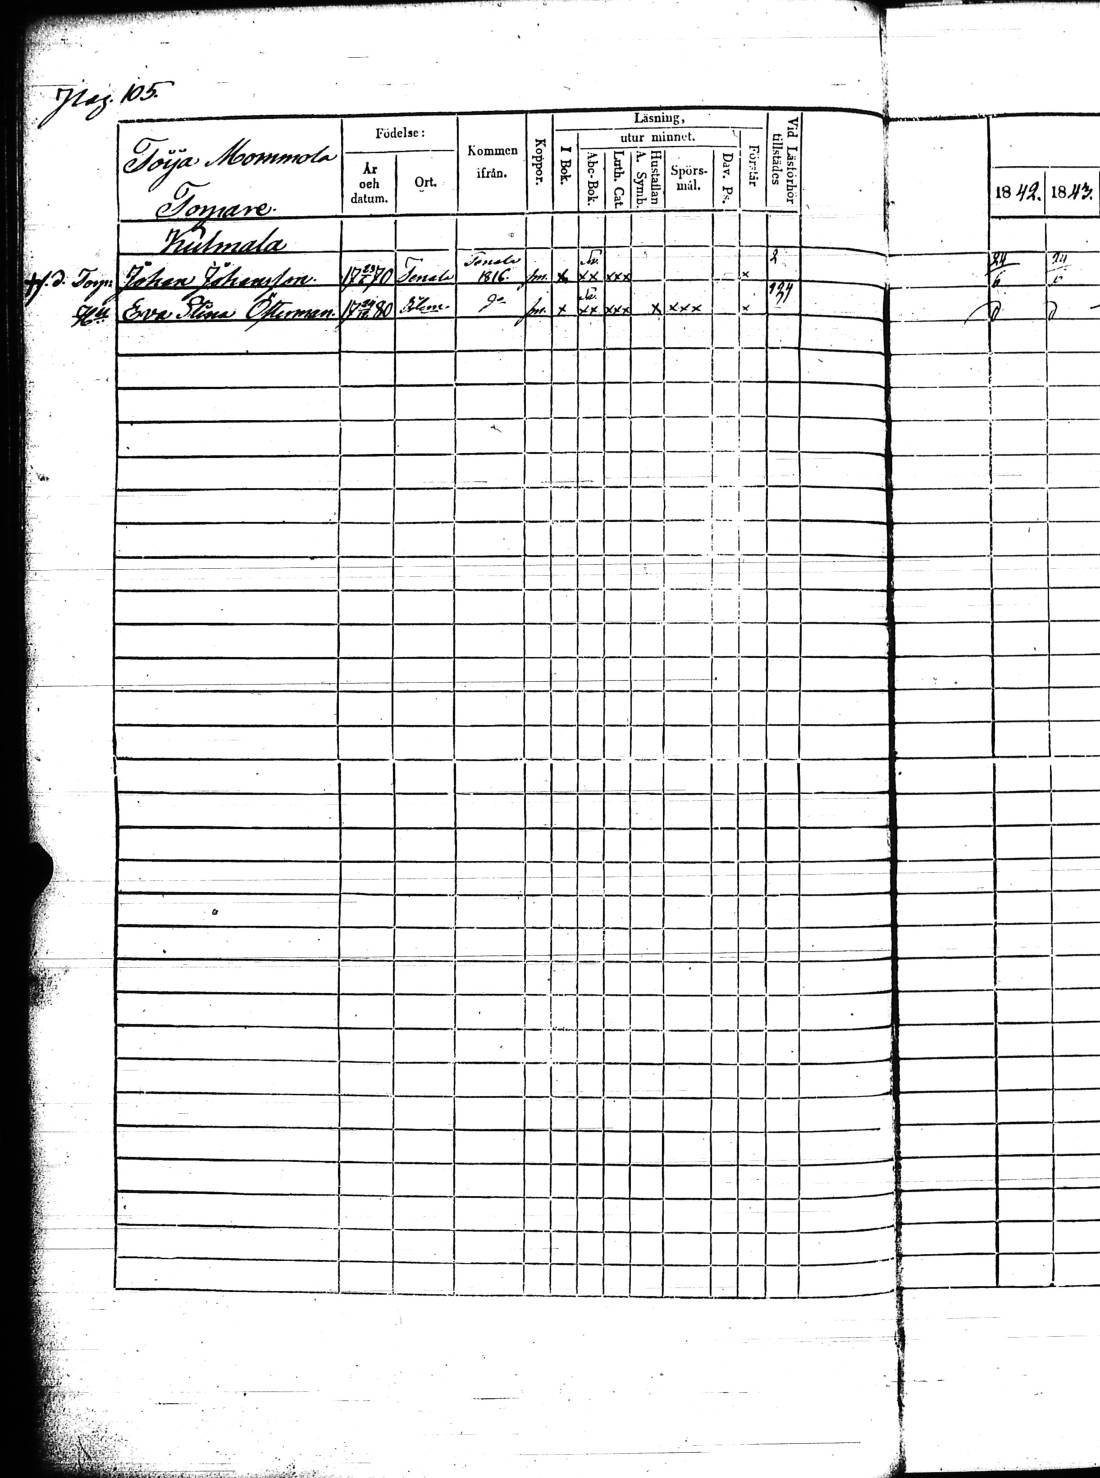 Pag. 105.
Töija Mommola
Torpare.
Födelse:
År och datum.
Ort.
Kommen ifrån.
Koppor.
Läsning,
I Bok.
utur minnet.
Abc-Bok.
Luth. Cat.
Hustaflan A. Symb.
Spörsmål.
Dav. Ps.
Förstår
Vid Läsförhör tillstädes
1842. 1843.
Kulmala
f.d. Torp: Johan Johansson. 17 23/ 70 Tenala Tenala 1816. x xx xxx x 2
Eva Stina Österman. 17 80 x xx xxx x xxx x 124